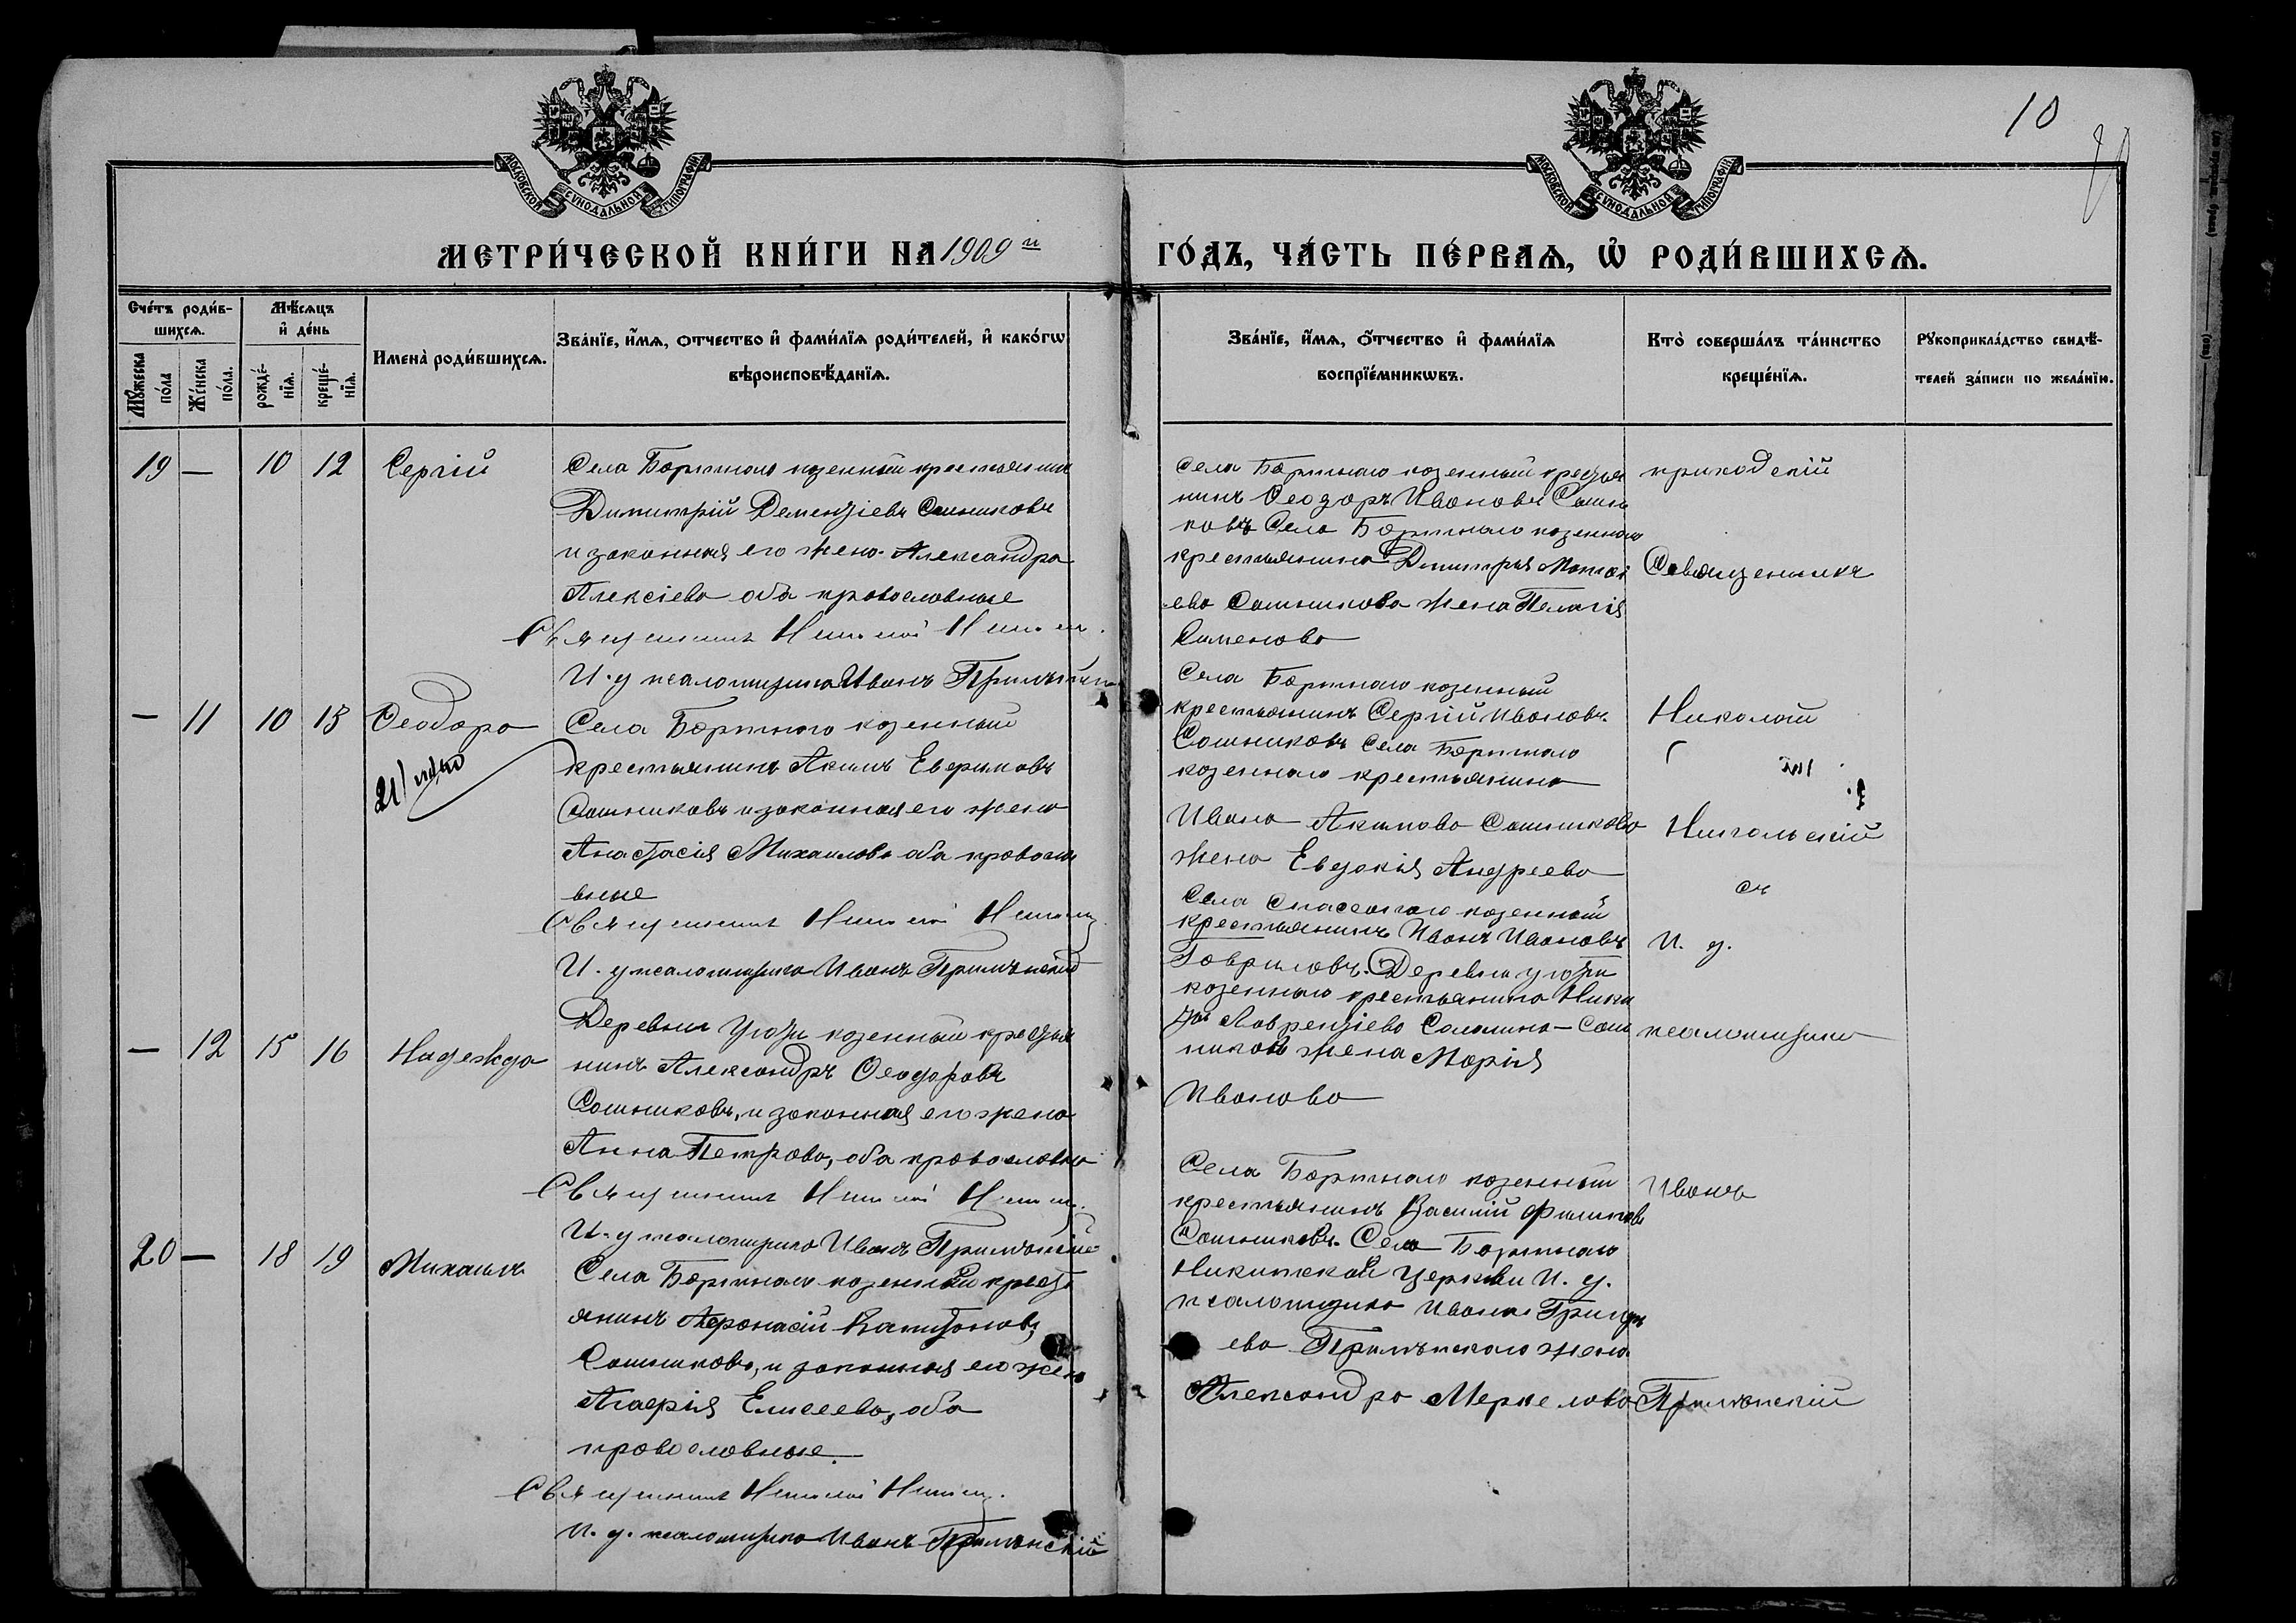 10
МОСКОВСКОЙ СѴНОДАЛЬНОЙ ТИПОГРАФІИ
МОСКОВСКОЙ СѴНОДАЛЬНОЙ ТИПОГРАФІИ
МЕТРИ́ЧЕСКОЙ КНИ́ГИ НА 1909 й
ГО́ДЪ, ЧА́СТЬ ПЕ́РВАѦ, Ѡ҆ РОДИ́ВШИХСѦ.
Сче́тъ роди́в-
шихсѧ.
Мѣ́сѧцъ
и҆ де́нь
Мꙋ́жеска по́ла
Же́нска по́ла.
рожде́-
нїѧ.
креще́-
нїѧ.
Имена̀ роди́вшихсѧ.
Зва́нїе, и҆́мѧ, о҆́тчество и҆ фами́лїѧ роди́телей, и҆ како́гѡ
вѣроисповѣ́данїѧ.
Зва́нїе, и҆́мѧ, о҆́тчество и҆ фами́лїѧ
воспрїе́мникѡвъ.
Кто̀ соверша́лъ та́инство
креще́нїѧ.
Рꙋкоприкла́дство свидѣ́-
телей за́писи по жела́нїю.
19 — 10 12 Сергій
Села Бортнаго козенный крестьянинъ
Димитрій Дементіевъ Сошниковъ
и законная его жена Александра
Алексіева оба православные
Священникъ Николай
И. д псаломщика Иванъ
Села Бортнаго козенный крестья
нинъ Ѳеодоръ Ивановъ Сошни
ковъ Села Бортнаго козеннаго
крестьянина Димитрія
ева Сошникова жена Пелагія
Симеонова
приходскій
Священникъ
— 11 10 13 Ѳеодора
Села Бортнаго козенный
крестьянинъ Акимъ Евфимовъ
Сошниковъ и законная его жена
Анастасія Михаилова оба правосла
вные
Священникъ Николай
И. д псаломщика Иванъ
Села Бортнаго козенный
крестьянинъ Сергій Ивановъ
Сошниковъ Села Бортнаго
козеннаго крестьянина
Ивана Акимова Сошникова
жена Евдокія Андреева
Николай
Никольскій
съ
— 12 15 16 Надежда
Деревни козенный крестья
нинъ Александръ Ѳеодоровъ
Сошниковъ, и законная его жена
Анна Петрова, оба православные
Священникъ Николай
И. д псаломщика Иванъ
Села Спасскаго козенный
крестьянинъ Иванъ Ивановъ
Гавриловъ. Деревни
козеннаго крестьянина Ники
ты Лаврентіева
жена Марія
Иванова
И. д.
псаломщика
20 — 18 19 Михаилъ
Села Бортнаго козенный кресть
янинъ Афонасій Капитоновъ
Сошниковъ, и законная его жена
Агафія Елисеева, оба
православные.
Священникъ Николай
И. д. псаломщика Иванъ
Села Бортнаго козенный
крестьянинъ Василій Филиповъ
Сошниковъ. Села Бортнаго
Никитской церкви И. д.
псаломщика Ивана Григорь
ева жена
Александра Меркелова
Иванъ